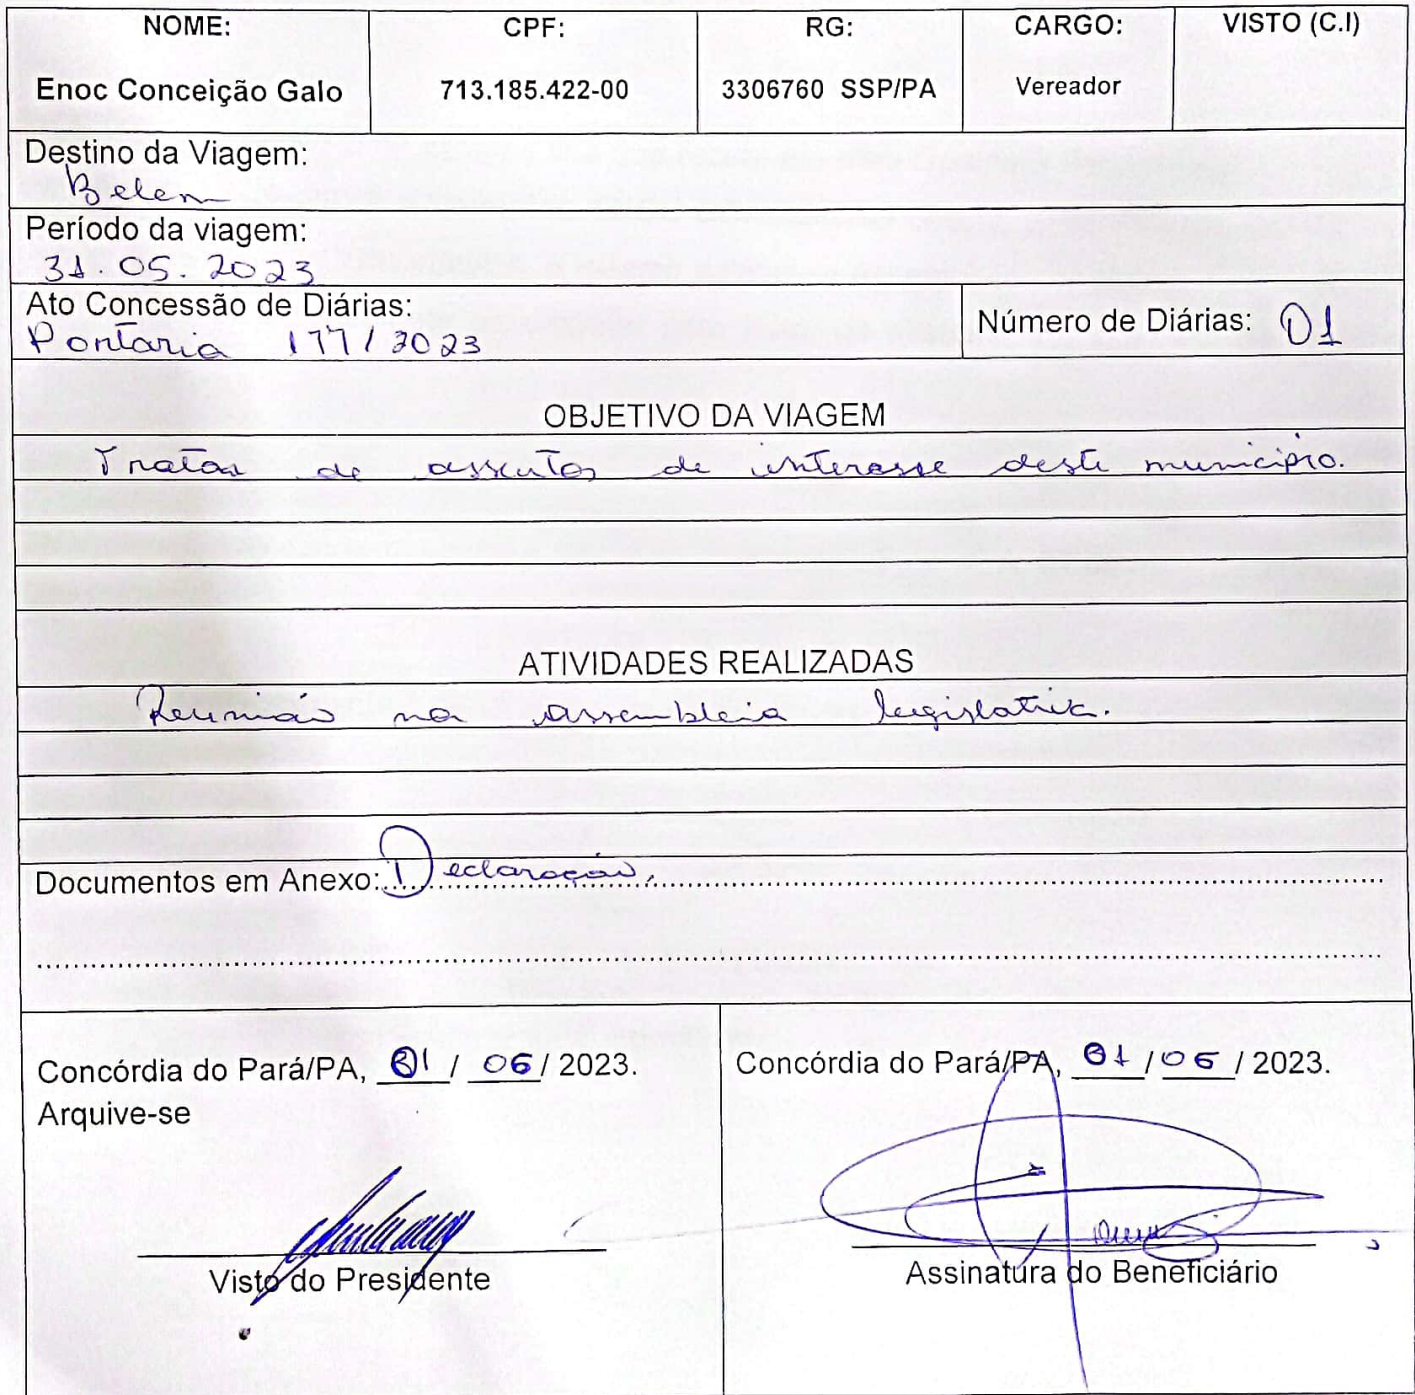 NOME: CPF: RG: CARGO: VISTO (C.I)
Enoc Conceição Galo 713.185.422-00 3306760 SSP/PA Vereador
Destino da Viagem:
Belem
Período da viagem:
31.05.2023
Ato Concessão de Diárias:
Portaria 177/2023
Número de Diárias: 01
OBJETIVO DA VIAGEM
Tratar de assutos de interesse deste município.
ATIVIDADES REALIZADAS
Reunião na assembleia legislativa.
Documentos em Anexo: Declaração.
Concórdia do Pará/PA, 01 / 06 / 2023.
Arquive-se
Visto do Presidente
Concórdia do Pará/PA, 01 / 06 / 2023.
Assinatura do Beneficiário